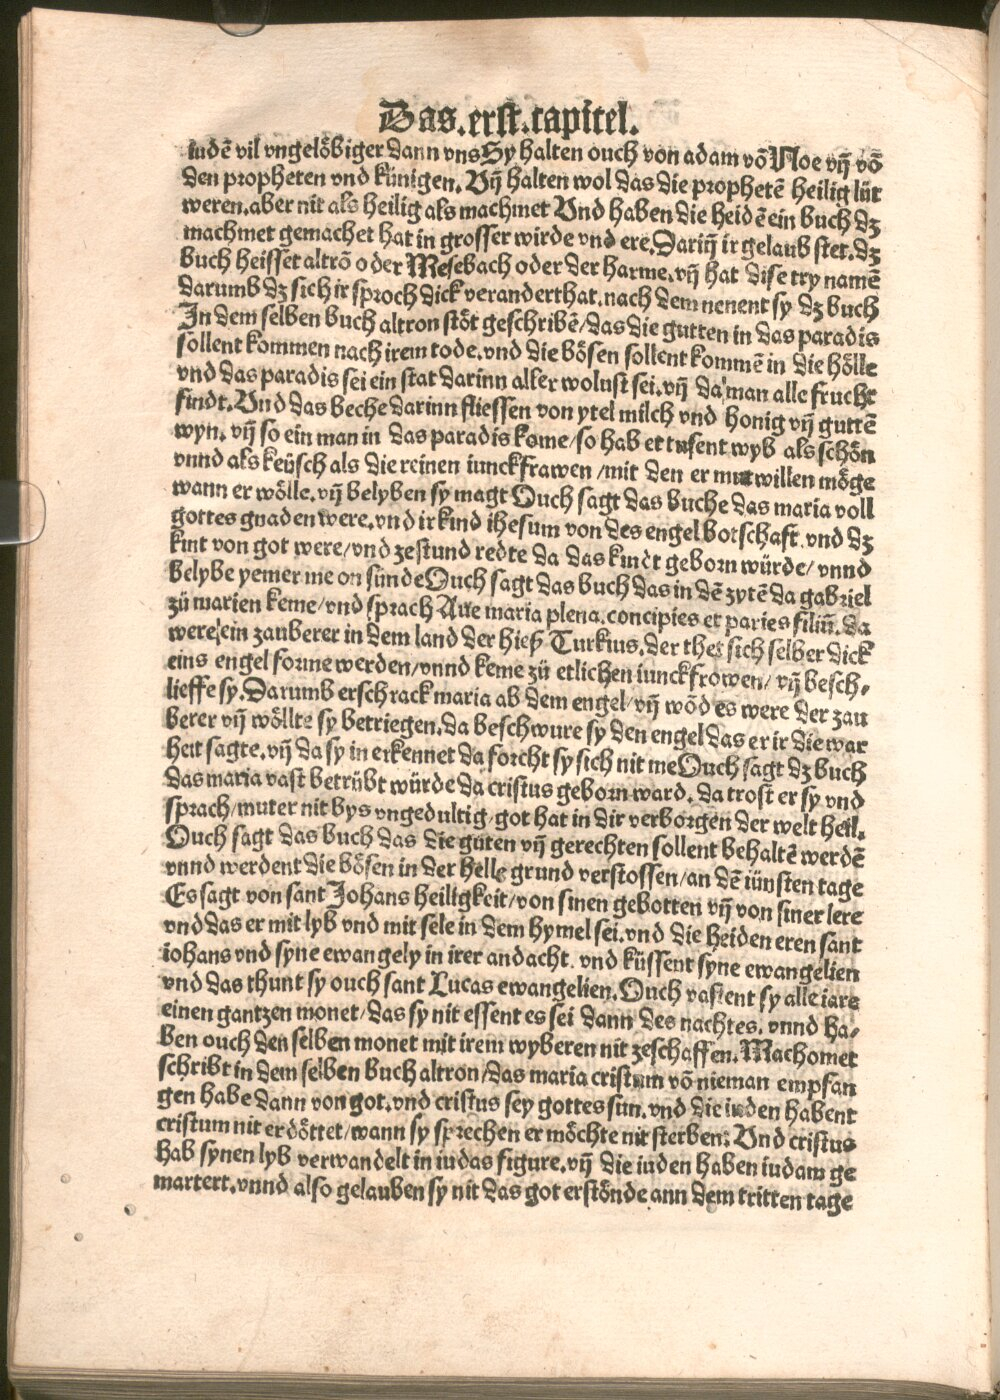 Das.erst.capitel.
iudē vil vngelöbiger dann vns Sy halten ouch von adam vō Noe vñ vō
den propheten vnd künigen. Vñ halten wol das die prophetē heilig lüt
weren. aber nit als heilig als machmet Vnd haben die heidē ein buch dz
machmet gemachet hat in grosser wirde vnd ere. Dariñ ir gelaub stet. dz
buch heisset altrō oder Mesebach oder der harme. vñ hat dise try namē
darumb dz sich ir sproch dick veranderthat. nach dem nenent sy dz buch
In dem selben buch altron stöt geschribē/das die gutten in das paradis
sollent kommen nach irem tode. vnd die bösen sollent kommē in die hölle
vnd das paradis sei ein stat darinn aller wolust sei. vñ da man alle frucht
findt. Vnd das beche darinn fliessen von ytel milch vnd honig vñ guttē
wyn. vñ so ein man in das paradis kome/so hab et tusent wyb als schön
vnnd als keüsch als die reinen iunckfrawen/mit den er mutwillen möge
wann er wölle. vñ belyben sy magt Ouch sagt das buche das maria voll
gottes gnaden were. vnd ir kind ihesum von des engel botschaft. vnd dz
kint von got were/vnd zestund redte da das kindt geborn würde/vnnd
belybe yemer me on sünde Ouch sagt das buch das in dē zytē da gabriel
zü marien keme/vnd sprach Aue maria plena. concipies et paries filiū. da
were ein zauberer in dem land der hieß Turkius. der thet sich selber dick
eins engel forme werden/vnnd keme zü etlichen iunckfrowen/vñ besch-
lieffe sy. Darumb erschrack maria ab dem engel/vñ wōd es were der zau
berer vñ wöllte sy betriegen. da beschwure sy den engel das er ir die war
heit sagte. vñ da sy in erkennet da forcht sy sich nit me Ouch sagt dz buch
das maria vast betrübt würde da cristus geborn ward. da trost er sy vnd
sprach/muter nit bys vngedultig/got hat in dir verborgen der welt heil.
Ouch sagt das buch das die güten vñ gerechten sollent behaltē werdē
vnnd werdent die bösen in der helle grund verstossen/an dē iünsten tage
Es sagt von sant Johans heiligkeit/von sinen gebotten vñ von siner lere
vnd das er mit lyb vnd mit sele in dem hymel sei. vnd die heiden eren sant
iohans vnd syne ewangely in irer andacht. vnd küssent syne ewangelien
vnd das thunt sy ouch sant Lucas ewangelien. Ouch vastent sy alle iare
einen gantzen monet/das sy nit essent es sei dann des nachtes. vnnd ha-
ben ouch den selben monet mit irem wyberen nit zeschaffen. Machomet
schribt in dem selben buch altron/das maria cristum vō nieman empfan
gen habe dann von got. vnd cristus sey gottes sun. vnd die iuden habent
cristum nit erdöttet/wann sy sprechen er möchte nit sterben: Vnd cristus
hab synen lyb verwandelt in iudas figure. vñ die iuden haben iudam ge
martert. vnnd also gelauben sy nit das got erstönde ann dem tritten tage